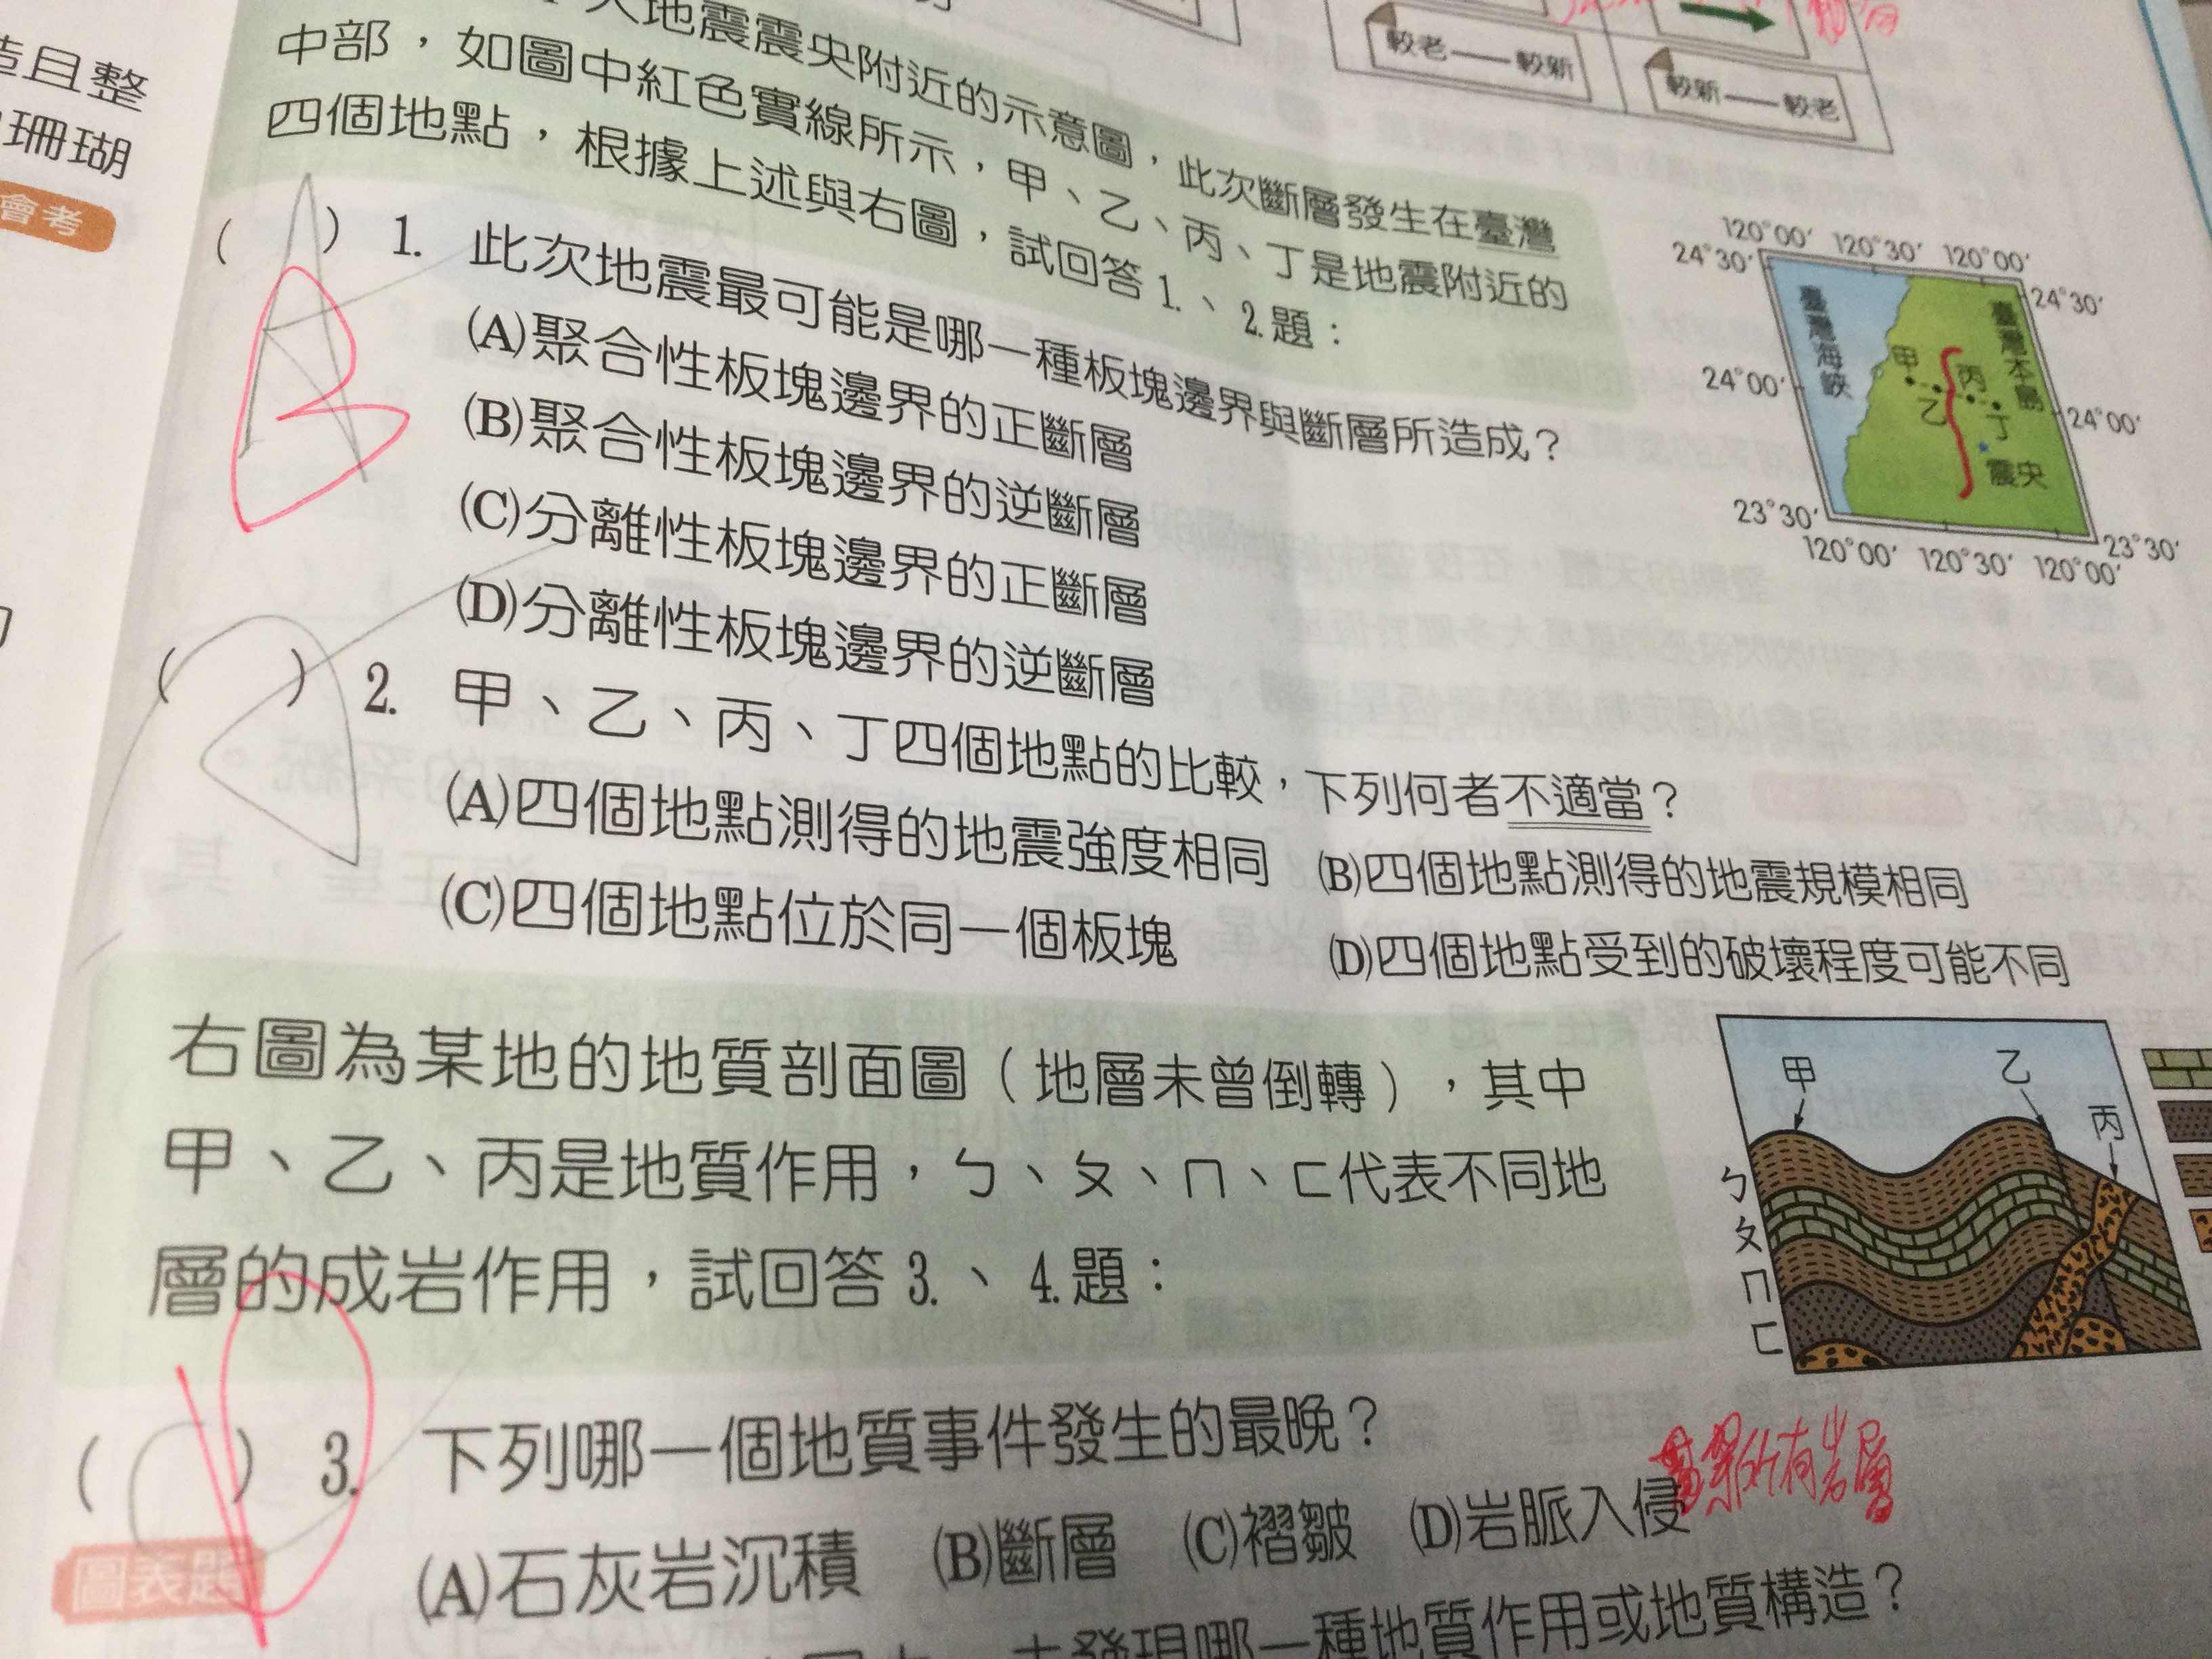 造且整
珊瑚
會考
較老——較新
較新——較老
大地震震央附近的示意圖，此次斷層發生在臺灣
中部，如圖中紅色實線所示，甲、乙、丙、丁是地震附近的
四個地點，根據上述與右圖，試回答1.、2.題：
( ) 1. 此次地震最可能是哪一種板塊邊界與斷層所造成？
B
(A)聚合性板塊邊界的正斷層
(B)聚合性板塊邊界的逆斷層
(C)分離性板塊邊界的正斷層
(D)分離性板塊邊界的逆斷層
120°00′ 120°30′ 120°00′
24°30′
24°30′
臺灣海峽
臺灣本島
甲
乙
丙
丁
24°00′
24°00′
震央
23°30′
23°30′
120°00′ 120°30′ 120°00′
( ) 2. 甲、乙、丙、丁四個地點的比較，下列何者不適當？
(A)四個地點測得的地震強度相同 (B)四個地點測得的地震規模相同
(C)四個地點位於同一個板塊 (D)四個地點受到的破壞程度可能不同
右圖為某地的地質剖面圖（地層未曾倒轉），其中
甲、乙、丙是地質作用，ㄅ、ㄆ、ㄇ、ㄈ代表不同地
層的成岩作用，試回答3.、4.題：
甲
乙
丙
ㄅ
ㄆ
ㄇ
ㄈ
( ) 3. 下列哪一個地質事件發生的最晚？
圖表題
(A)石灰岩沉積 (B)斷層 (C)褶皺 (D)岩脈入侵
所有岩層
發現哪一種地質作用或地質構造？